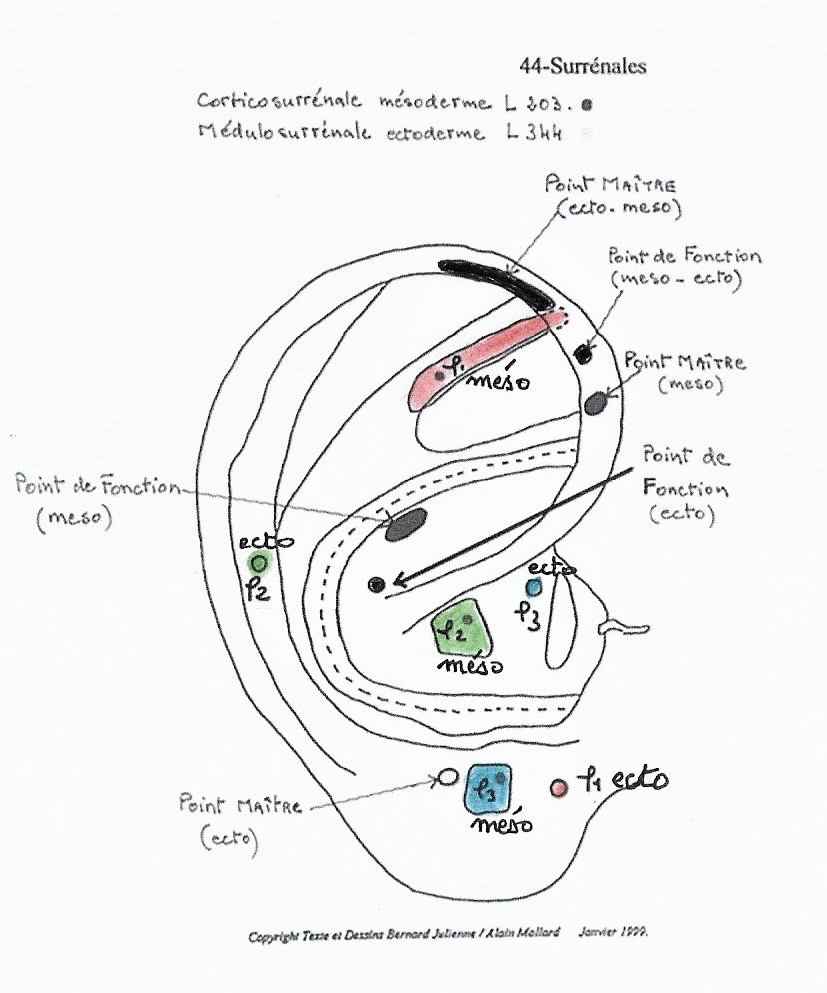 44-Surrénales
Corticosurrénale mésoderme L 203.
Médulosurrénale ectoderme L 344
Point MAÎTRE
(ecto-meso)
Point de Fonction
(meso - ecto)
Point MAÎTRE
(meso)
méso
Point de
Fonction
(ecto)
Point de Fonction
(meso)
ecto
P2
ecto
P3
P2
méso
Point MAÎTRE
(ecto)
P3
méso
P1 ecto
P1
Copyright Texte et Dessins Bernard Julienne / Alain Mallard Janvier 1999.